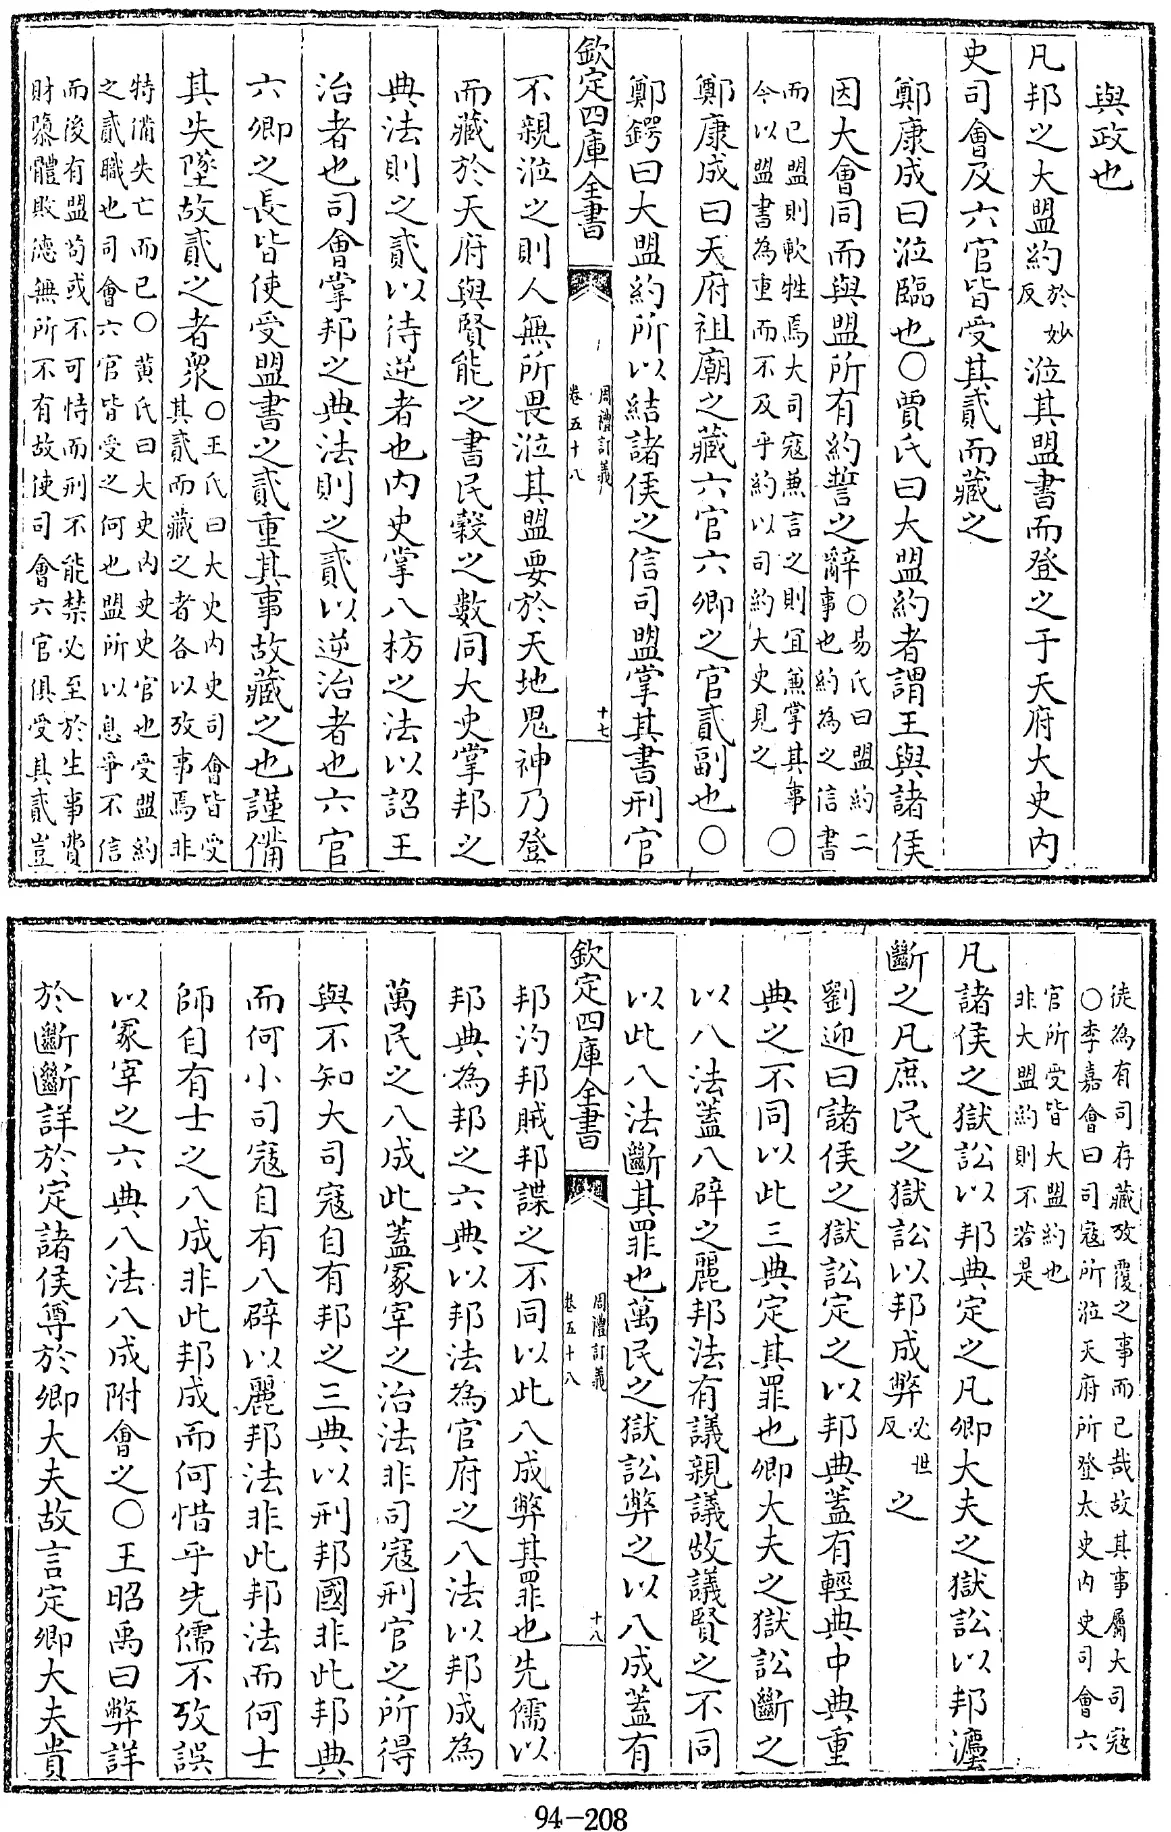 與政也
凡邦之大盟約於妙反涖其盟書而登之于天府大史內
史司會及六官皆受其貳而藏之
鄭康成曰涖臨也〇賈氏曰大盟約者謂王與諸侯
因大會同而與盟所有約誓之辭〇易氏曰盟約二事也約為之信書
而已盟則軟牲焉大司寇兼言之則宜兼掌其事〇今以盟書為重而不及乎約以司約大史見之
鄭康成曰天府祖廟之藏六官六卿之官貳副也〇
鄭鍔曰大盟約所以結諸侯之信司盟掌其書刑官
欽定四庫全書
周禮訂義
卷五十八
十七
不親涖之則人無所畏涖其盟要於天地鬼神乃登
而藏於天府與賢能之書民穀之數同大史掌邦之
典法則之貳以待逆者也內史掌八枋之法以詔王
治者也司會掌邦之典法則之貳以逆治者也六官
六卿之長皆使受盟書之貳重其事故藏之也謹備
其失墜故貳之者衆〇王氏曰大史內史司會皆受其貳而藏之者各以攷事焉非
特備失亡而已〇黃氏曰大史內史史官也受盟約之貳職也司會六官皆受之何也盟所以息爭不信
而後有盟苟或不可恃而刑不能禁必至於生事費財隳體敗德無所不有故使司會六官俱受具貳豈
徒為有司存藏攷覆之事而已哉故其事屬大司寇〇李嘉會曰司寇所涖天府所登太史內史司會六
官所受皆大盟約也非大盟約則不若是
凡諸侯之獄訟以邦典定之凡卿大夫之獄訟以邦灋
斷之凡庶民之獄訟以邦成弊必世反之
劉迎曰諸侯之獄訟定之以邦典蓋有輕典中典重
典之不同以此三典定其罪也卿大夫之獄訟斷之
以八法蓋八辟之麗邦法有議親議故議賢之不同
以此八法斷其罪也萬民之獄訟弊之以八成蓋有
欽定四庫全書
周禮訂義
卷五十八
十八
邦汋邦賊邦諜之不同以此八成弊其罪也先儒以
邦典為邦之六典以邦法為官府之八法以邦成為
萬民之八成此蓋冢宰之治法非司寇刑官之所得
與不知大司寇自有邦之三典以刑邦國非此邦典
而何小司寇自有八辟以麗邦法非此邦法而何士
師自有士之八成非此邦成而何惜乎先儒不攷誤
以冢宰之六典八法八成附會之〇王昭禹曰弊詳
於斷斷詳於定諸侯尊於卿大夫故言定卿大夫貴
94-208